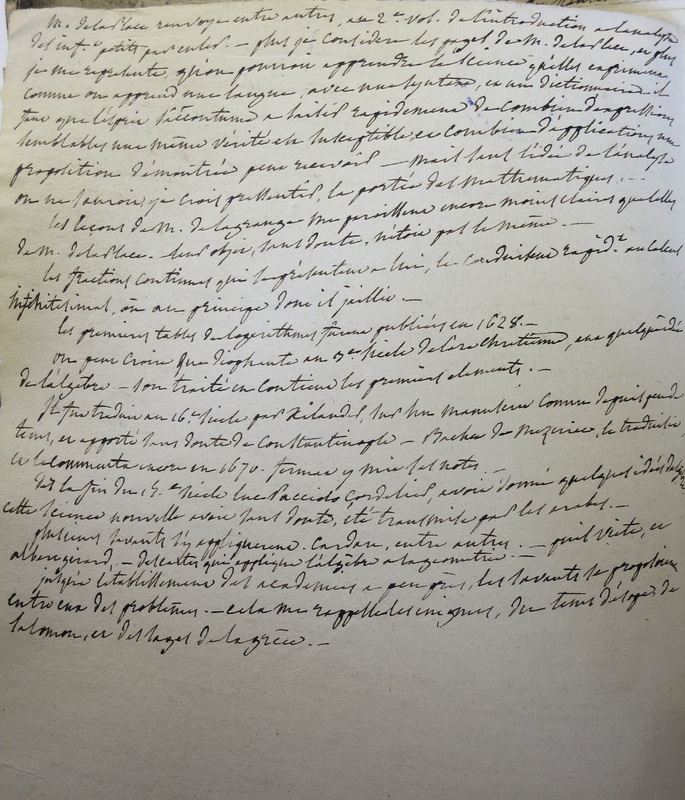 M. de la Place renvoye entre autres, au 2.e vol. de l'introduction a l'analyse
des inf.t petits par euler. — plus je considere les pages de M. de la Place, et plus
je me represente, qu'on pourroit apprendre la science qu'elles enferment
comme on apprend une langue, avec une syntaxe, et un dictionnaire. il
faut que l'esprit s'accoutume a saisir rapidement de combien d'expressions
semblables une même vérité est susceptible, et combien d'applications une
proposition démontrée peut recevoir — mais sans l'idée de l'analyse
on ne sauroit, je crois pressentir, la portée des mathematiques. —
les leçons de M. de lagrange me paroissent encore moins claires que celles
de M. de la Place. leur objet, sans doute, n'étoit pas le même. —
les fractions continues qui se présentent a lui, le conduisent rapid.t au calcul
infinitesimal, ou au principe dont il jaillit. —
les premieres tables de logarithmes furent publiées en 1628. —
on peut croire que diophante au 3.me siecle de l'ere chretienne, eut quelque idée
de l'algebre — son traité en contient les premiers elements. —
Il fut traduit au 16.e siecle par Xilander, sur un manuscrit connu depuis peu de
tems, et apporté sans doute de Constantinople — Bachet de Meziriac, le traduisit,
et le commenta encore en 1670. fermat y mit ses notes. —
Dès la fin du 15.e siecle luc Pacciolo Cordelier, avoit donné quelques idées de
cette science nouvelle avoit sans doute, été transmise par les arabes. —
plusieurs savants s'y appliquerent. Cardan, entre autres. — puis viete, et
albert girard, — descartes qui appliqua l'algebre a la geometrie. —
jusqu'a l'etablissement des academies a peu près, les savants se proposoient
entre eux des problèmes. — cela me rappelle les enigmes, du tems d'esope, de
salomon, et des sages de la grèce. —